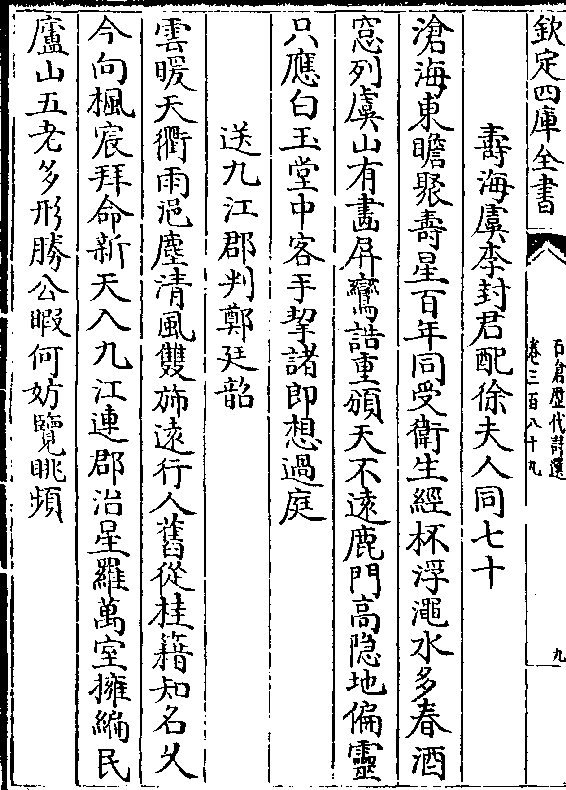 欽定四庫全書
石倉歷代詩選
卷三百八十九
九
壽海虞李封君配徐夫人同七十
滄海東瞻聚壽星百年同受衛生經杯浮澠水多春酒
窓列虞山有畫屛鸞誥重頒天不遠鹿門高隐地偏靈
只應白玉堂中客手挈諸郎想過庭
送九江郡判鄭廷韶
雲暖天衢雨浥塵清風雙斾遠行人舊從桂籍知名乆
今向楓宸拜命新天入九江連郡治星羅萬室擁編民
廬山五老多形勝公暇何妨覽眺頻